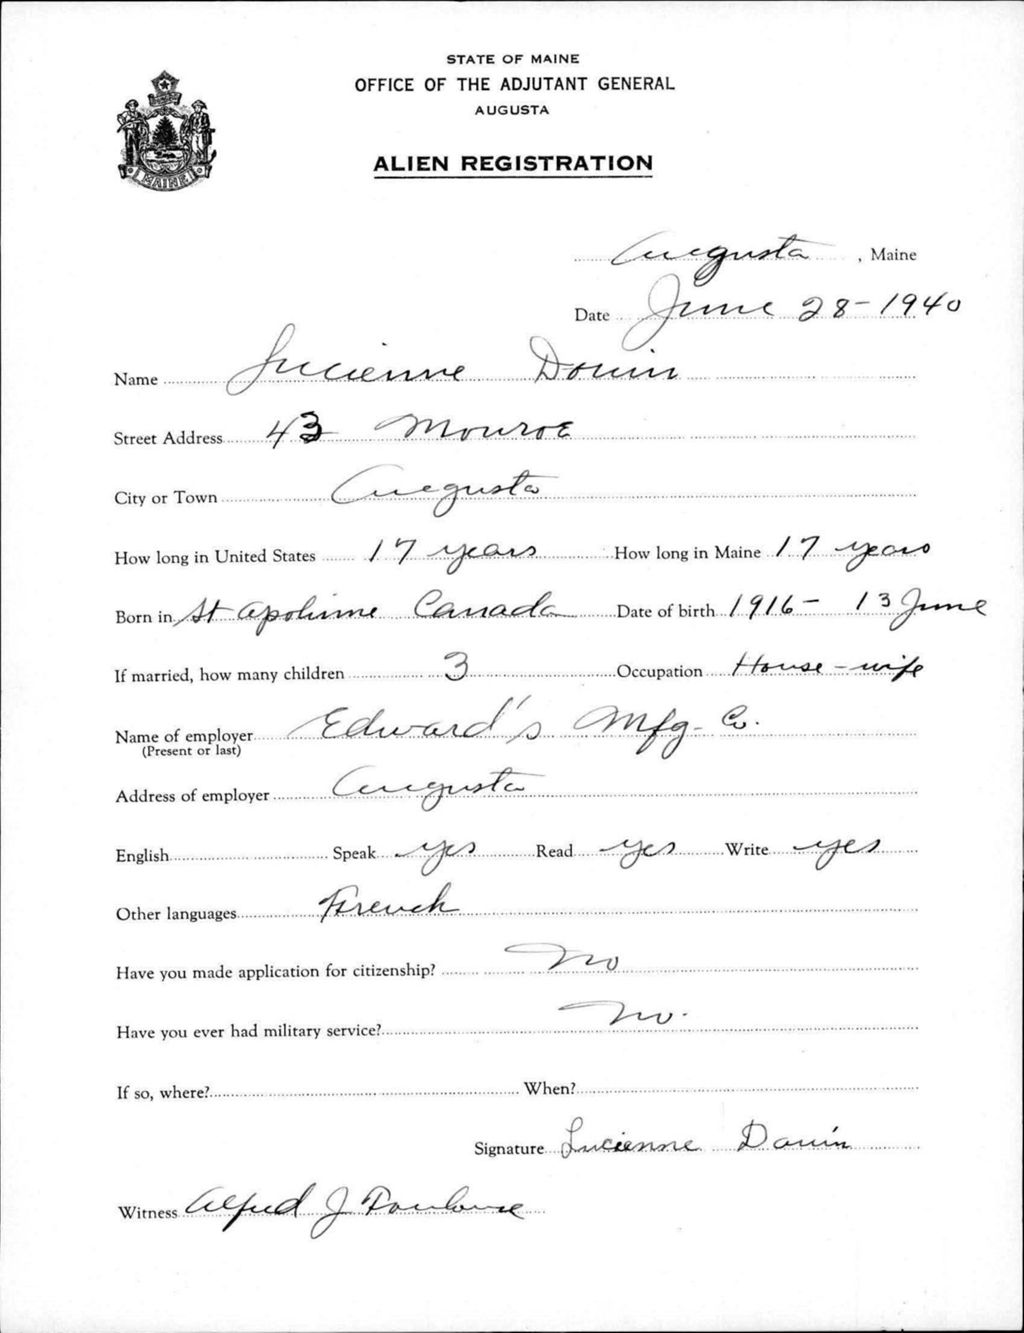 STATE OF MAINE
OFFICE OF THE ADJUTANT GENERAL
AUGUSTA
ALIEN REGISTRATION
MAINE
Augusta, Maine
Date June 28-1940
Name Lucienne Douin
Street Address 43 Monroe
City or Town Augusta
How long in United States 17 years How long in Maine 17 years
Born in St Apolinne Canada Date of birth 1916- 13 June
If married, how many children 3 Occupation House-wife
Name of employer Edward's Mfg-Co.
(Present or last)
Address of employer Augusta
English Speak yes Read yes Write yes
Other languages French
Have you made application for citizenship? No
Have you ever had military service? No.
If so, where? When?
Signature Lucienne Douin
Witness Alfred J